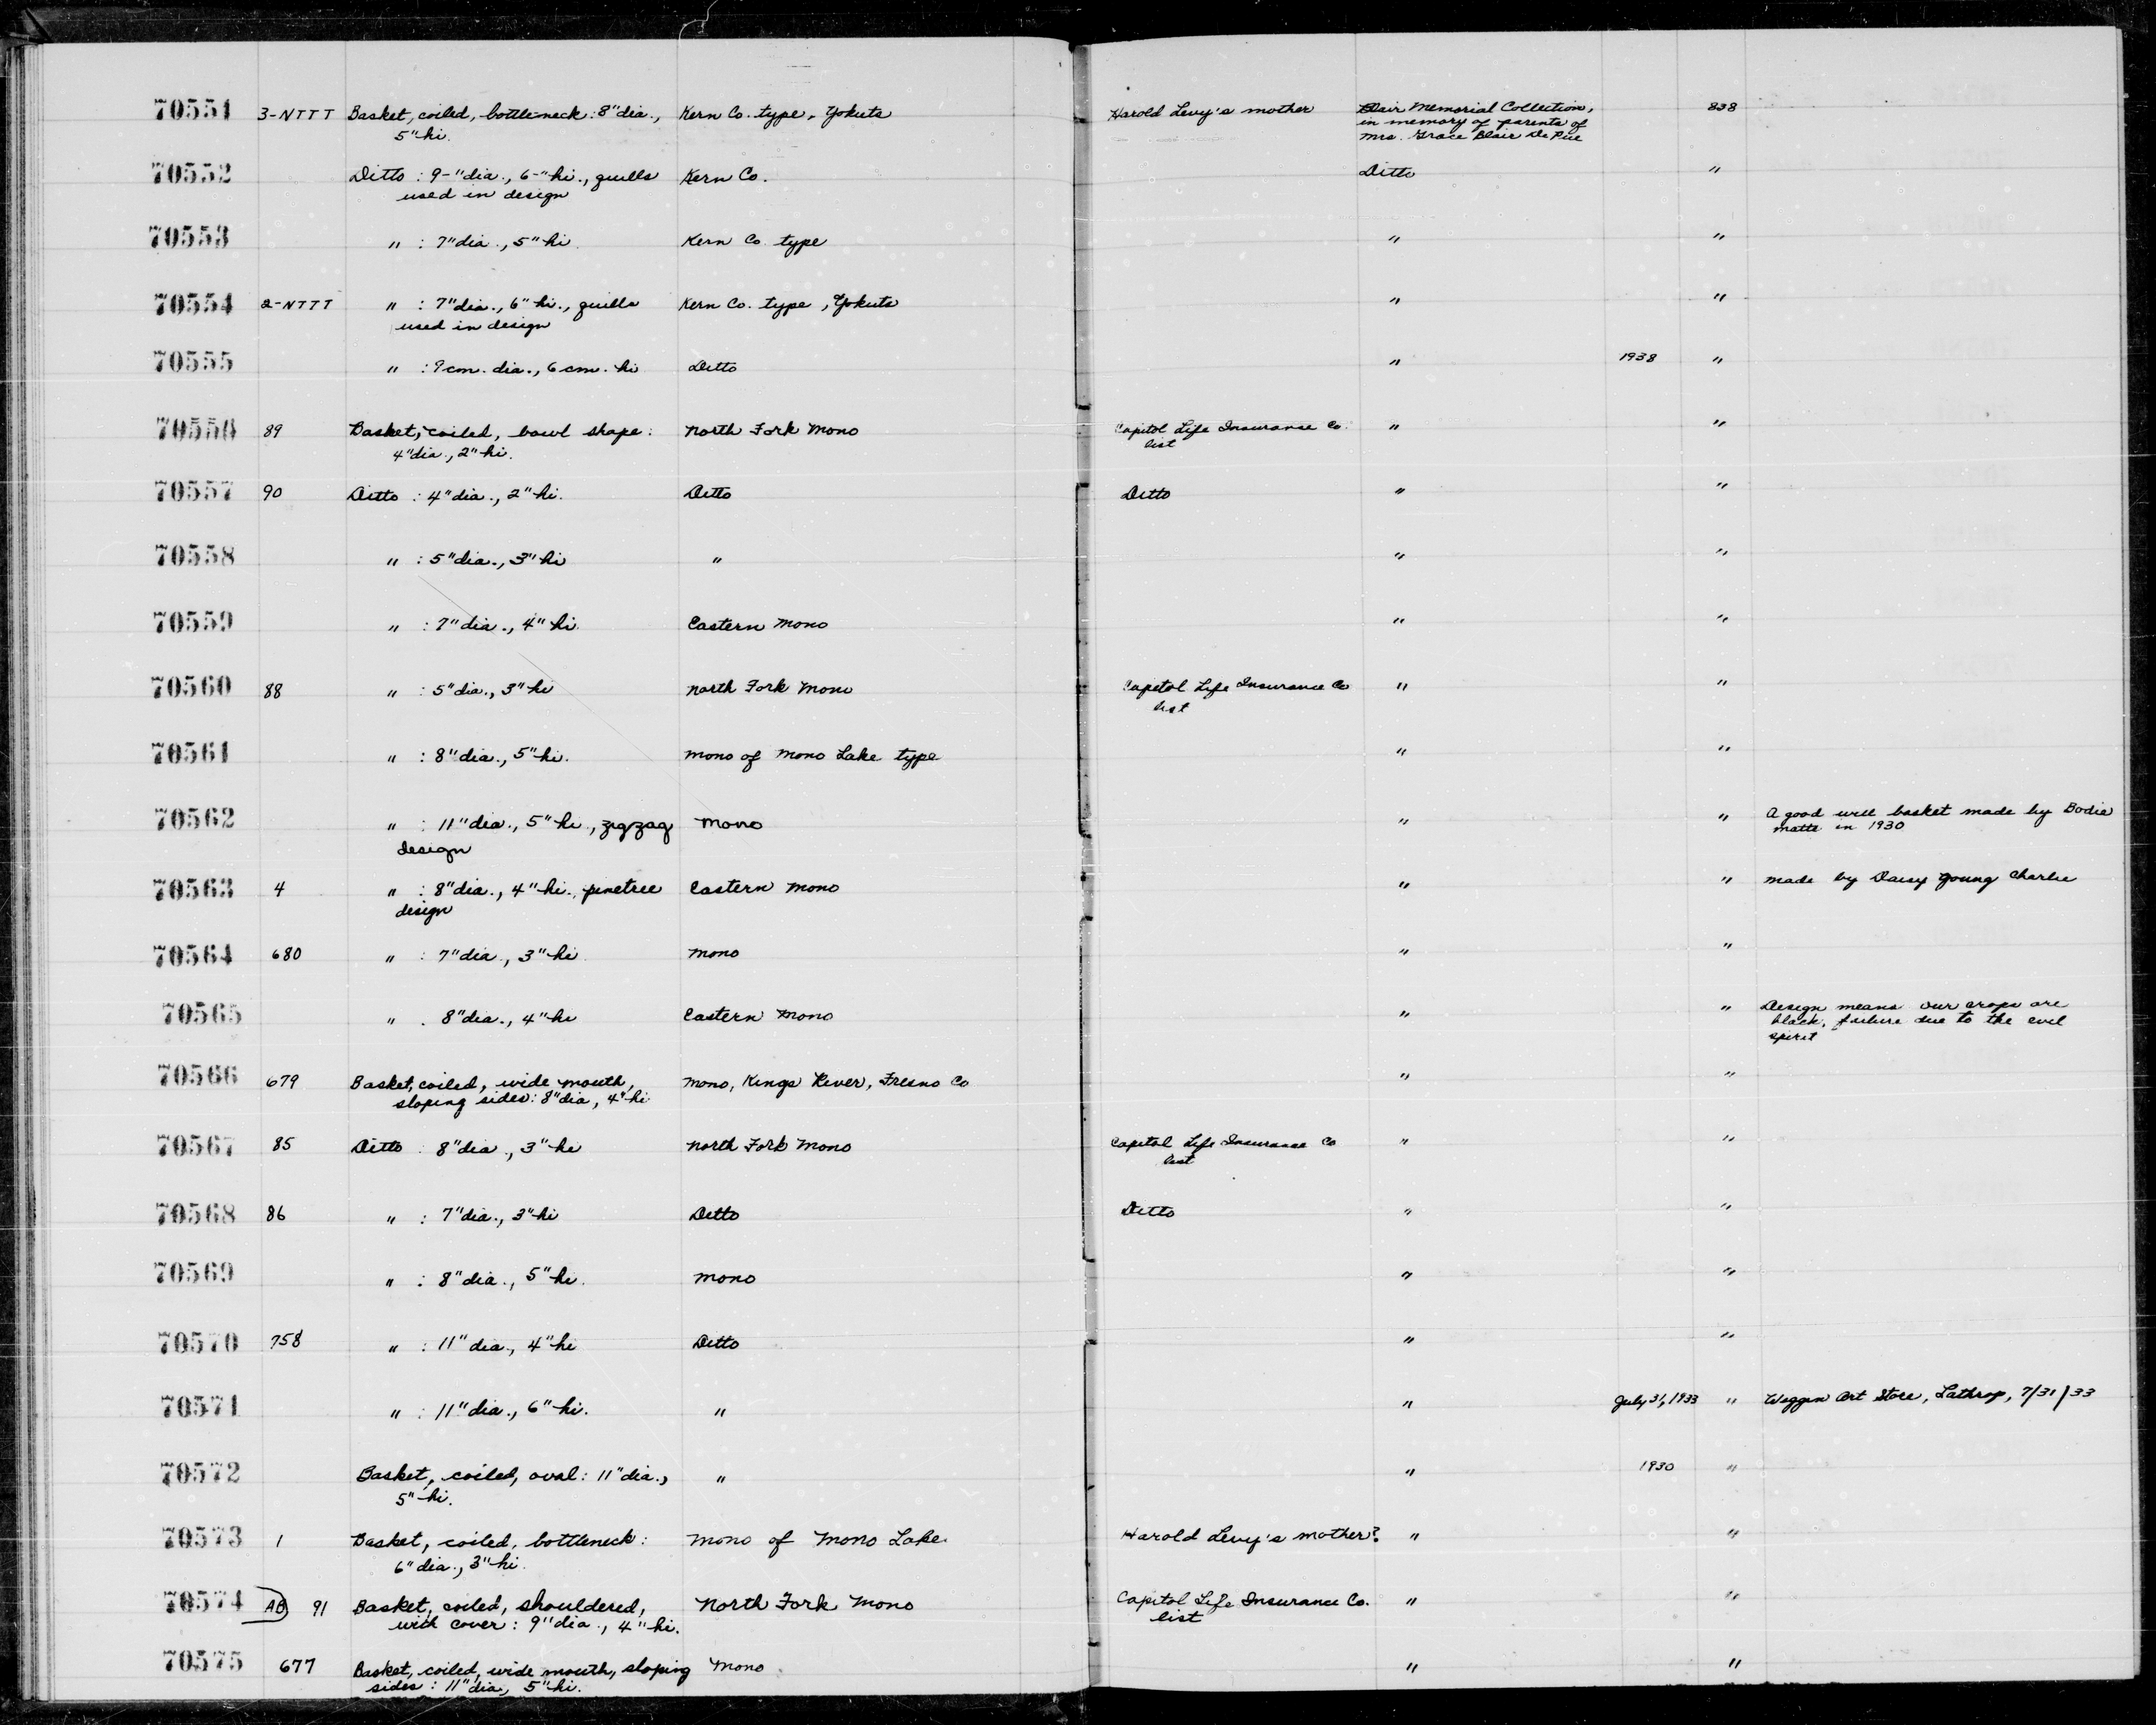 70551 3-NTTT Basket, coiled, bottle-neck: 8" dia., Kern Co. type, Yokuts Harold Levy's mother Blair Memorial Collection, 838
5" hi. in memory of parents of
Mrs. Grace Blair De Pue
70552 Ditto : 9-" dia., 6-" hi., quills Kern Co. Ditto "
used in design
70553 " : 7" dia., 5" hi. Kern Co. type " "
70554 2-NTTT " : 7" dia., 6" hi., quills Kern Co. type, Yokuts " "
used in design
70555 " : 9 cm. dia., 6 cm. hi Ditto " 1938 "
70556 89 Basket, coiled, bowl shape: North Fork Mono Capitol Life Insurance Co. " "
4" dia., 2" hi. list
70557 90 Ditto : 4" dia., 2" hi. Ditto Ditto " "
70558 " : 5" dia., 3" hi " " "
70559 " : 7" dia., 4" hi. Eastern Mono " "
70560 88 " : 5" dia., 3" hi North Fork Mono Capitol Life Insurance Co " "
list
70561 " : 8" dia., 5" hi. Mono of Mono Lake type " "
70562 " : 11" dia., 5" hi., zigzag Mono " " A good will basket made by Bodie
design Matte in 1930
70563 4 " : 8" dia., 4" hi., pinetree Eastern Mono " " Made by Daisy Young Charlie
design
70564 680 " : 7" dia., 3" hi Mono " "
70565 " . 8" dia., 4" hi Eastern Mono " " Design means our crops are
black, failure due to the evil
spirit
70566 679 Basket, coiled, wide mouth, Mono, Kings River, Fresno Co " "
sloping sides: 8" dia, 4" hi
70567 85 Ditto : 8" dia., 3" hi North Fork Mono Capitol Life Insurance Co " "
list
70568 86 " : 7" dia., 3" hi Ditto Ditto " "
70569 " : 8" dia., 5" hi. Mono " "
70570 758 " : 11" dia., 4" hi Ditto " "
70571 " : 11" dia., 6" hi. " " July 31, 1933 " Weggen Art Store, Lathrop, 7/31/33
70572 Basket, coiled, oval: 11" dia., " " 1930 "
5" hi.
70573 1 Basket, coiled, bottleneck: Mono of Mono Lake Harold Levy's mother? " "
6" dia., 3" hi.
70574 AB 91 Basket, coiled, shouldered, North Fork Mono Capitol Life Insurance Co. " "
with cover: 9" dia., 4" hi. list
70575 677 Basket, coiled, wide mouth, sloping Mono " "
sides: 11" dia, 5" hi.